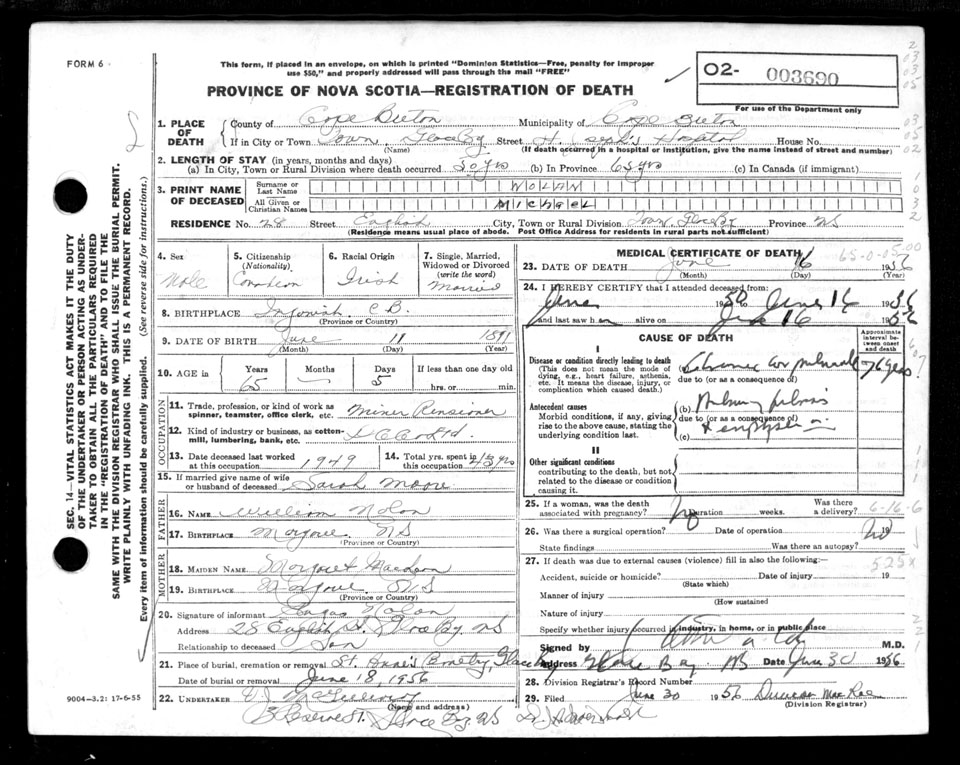 FORM 6
This form, if placed in an envelope, on which is printed "Dominion Statistics—Free, penalty for improper
use $50," and properly addressed will pass through the mail "FREE"
PROVINCE OF NOVA SCOTIA—REGISTRATION OF DEATH
02- 003690
For use of the Department only
1. PLACE OF DEATH
County of Cape Breton Municipality of Cape Breton
If in City or Town Town Glace Bay Street St Hospital House No.
(Name) (If death occurred in a hospital or institution, give the name instead of street and number)
2. LENGTH OF STAY (in years, months and days)
(a) In City, Town or Rural Division where death occurred 50 yrs (b) In Province 65 yrs (c) In Canada (if immigrant)
3. PRINT NAME OF DECEASED
Surname or Last Name NOLAN
All Given or Christian Names MICHAEL
RESIDENCE No. 28 Street English City, Town or Rural Division Town Glace Bay Province NS
(Residence means usual place of abode. Post Office Address for residents in rural parts not sufficient)
4. Sex
Male
5. Citizenship (Nationality)
Canadian
6. Racial Origin
Irish
7. Single, Married, Widowed or Divorced (write the word)
Married
8. BIRTHPLACE C.B.
(Province or Country)
9. DATE OF BIRTH June 11 1891
(Month) (Day) (Year)
10. AGE in
Years 65
Months
Days 5
If less than one day old
hrs. or min.
OCCUPATION
11. Trade, profession, or kind of work as
spinner, teamster, office clerk, etc. Miner Pensioner
12. Kind of industry or business, as cotton-
mill, lumbering, bank, etc.
13. Date deceased last worked
at this occupation 1949
14. Total yrs. spent in
this occupation 45 yrs
15. If married give name of wife
or husband of deceased Sarah Moore
FATHER
16. NAME William Nolan
17. BIRTHPLACE Margaree NS
(Province or Country)
MOTHER
18. MAIDEN NAME Margaret
19. BIRTHPLACE Margaree NS
(Province or Country)
20. Signature of informant Angus Nolan
Address 28 English St. Glace Bay NS
Relationship to deceased Son
21. Place of burial, cremation or removal St. Anne's Cemetery, Glace Bay
Date of burial or removal June 18, 1956
22. UNDERTAKER
(Name and address)
Glace Bay NS
9004—3.2: 17-6-55
MEDICAL CERTIFICATE OF DEATH
23. DATE OF DEATH June 16 1956
(Month) (Day) (Year)
65-0-05
24. I HEREBY CERTIFY that I attended deceased from:
June 1950 to June 16 1956
and last saw h alive on June 16 1956
CAUSE OF DEATH
Approximate interval between onset and death
I
Disease or condition directly leading to death
(This does not mean the mode of
dying, e.g., heart failure, asthenia,
etc. It means the disease, injury, or
complication which caused death.)
Chronic cor pulmonale years
due to (or as a consequence of)
Antecedent causes
Morbid conditions, if any, giving
rise to the above cause, stating the
underlying condition last.
(b) Pulmonary fibrosis
due to (or as a consequence of)
(c) emphysema
II
Other significant conditions
contributing to the death, but not
related to the disease or condition
causing it.
25. If a woman, was the death
associated with pregnancy? Duration weeks. Was there a delivery?
6-16-6
26. Was there a surgical operation? No Date of operation 19
State findings Was there an autopsy? No
27. If death was due to external causes (violence) fill in also the following:
525x
Accident, suicide or homicide? Date of injury 19
(State which)
Manner of injury
(How sustained)
Nature of injury
Specify whether injury occurred in industry, in home, or in public place
Signed by M.D.
Address Glace Bay NS Date June 30 1956
28. Division Registrar's Record Number
29. Filed June 30 1956 Duncan MacRae
(Division Registrar)
SEC. 14—VITAL STATISTICS ACT MAKES IT THE DUTY
OF THE UNDERTAKER OR PERSON ACTING AS UNDER-
TAKER TO OBTAIN ALL THE PARTICULARS REQUIRED
IN THE "REGISTRATION OF DEATH" AND TO FILE THE
SAME WITH THE DIVISION REGISTRAR WHO SHALL ISSUE THE BURIAL PERMIT.
WRITE PLAINLY WITH UNFADING INK. THIS IS A PERMANENT RECORD.
Every item of information should be carefully supplied. (See reverse side for instructions.)